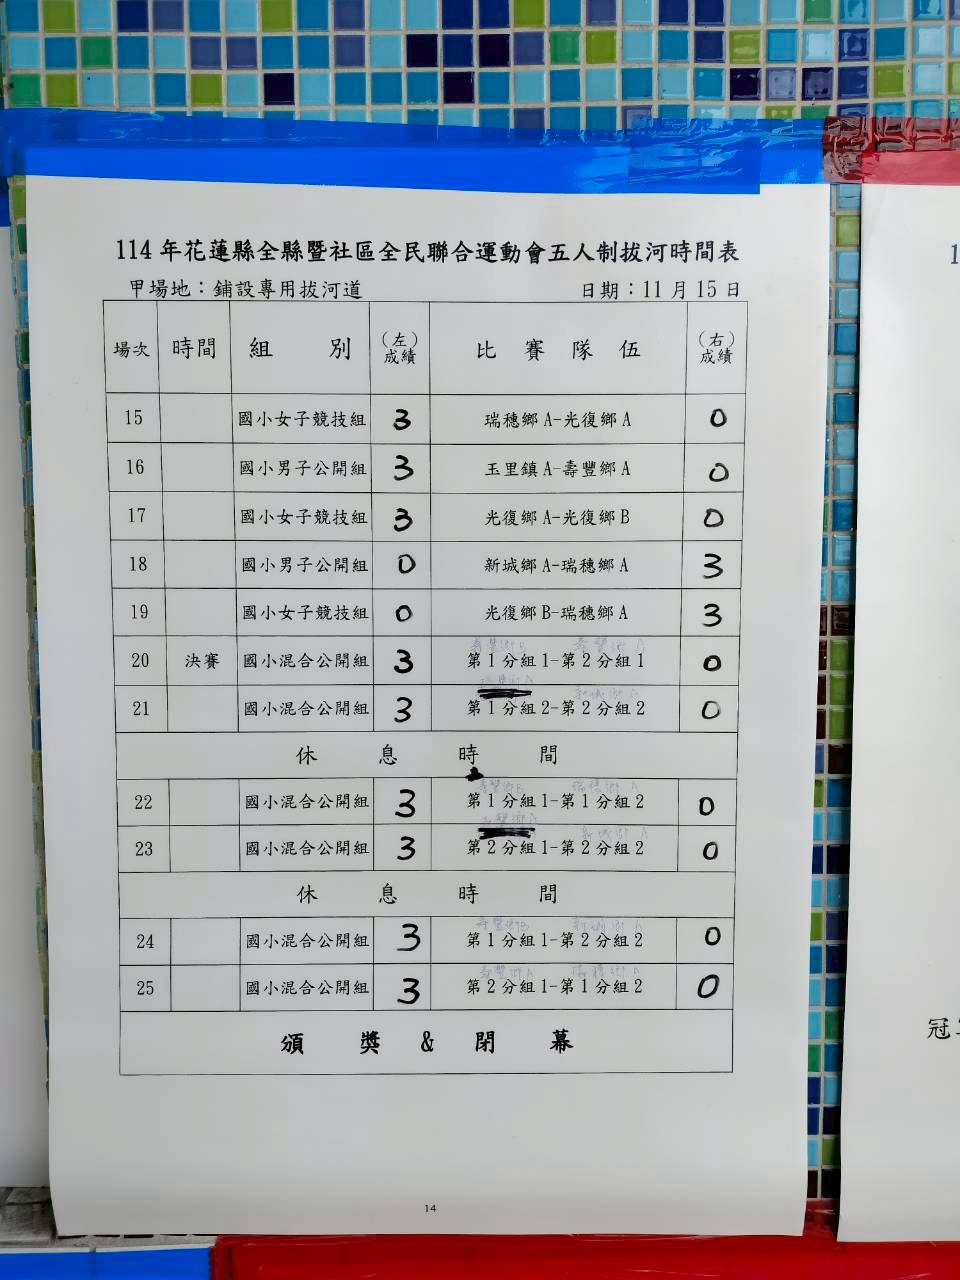 114年花蓮縣全縣暨社區全民聯合運動會五人制拔河時間表
甲場地：鋪設專用拔河道 日期：11月15日
場次 時間 組別 (左)成績 比賽隊伍 (右)成績
15 國小女子競技組 3 瑞穗鄉A-光復鄉A 0
16 國小男子公開組 3 玉里鎮A-壽豐鄉A 0
17 國小女子競技組 3 光復鄉A-光復鄉B 0
18 國小男子公開組 0 新城鄉A-瑞穗鄉A 3
19 國小女子競技組 0 光復鄉B-瑞穗鄉A 3
壽豐鄉B 壽豐鄉A
20 決賽 國小混合公開組 3 第1分組1-第2分組1 0
瑞穗鄉A 新城鄉A
21 國小混合公開組 3 第1分組2-第2分組2 0
休息時間
壽豐鄉B 瑞穗鄉A
22 國小混合公開組 3 第1分組1-第1分組2 0
壽豐鄉A 新城鄉A
23 國小混合公開組 3 第2分組1-第2分組2 0
休息時間
壽豐鄉B 新城鄉A
24 國小混合公開組 3 第1分組1-第2分組2 0
壽豐鄉A 瑞穗鄉A
25 國小混合公開組 3 第2分組1-第1分組2 0
頒獎&閉幕
14
1
冠